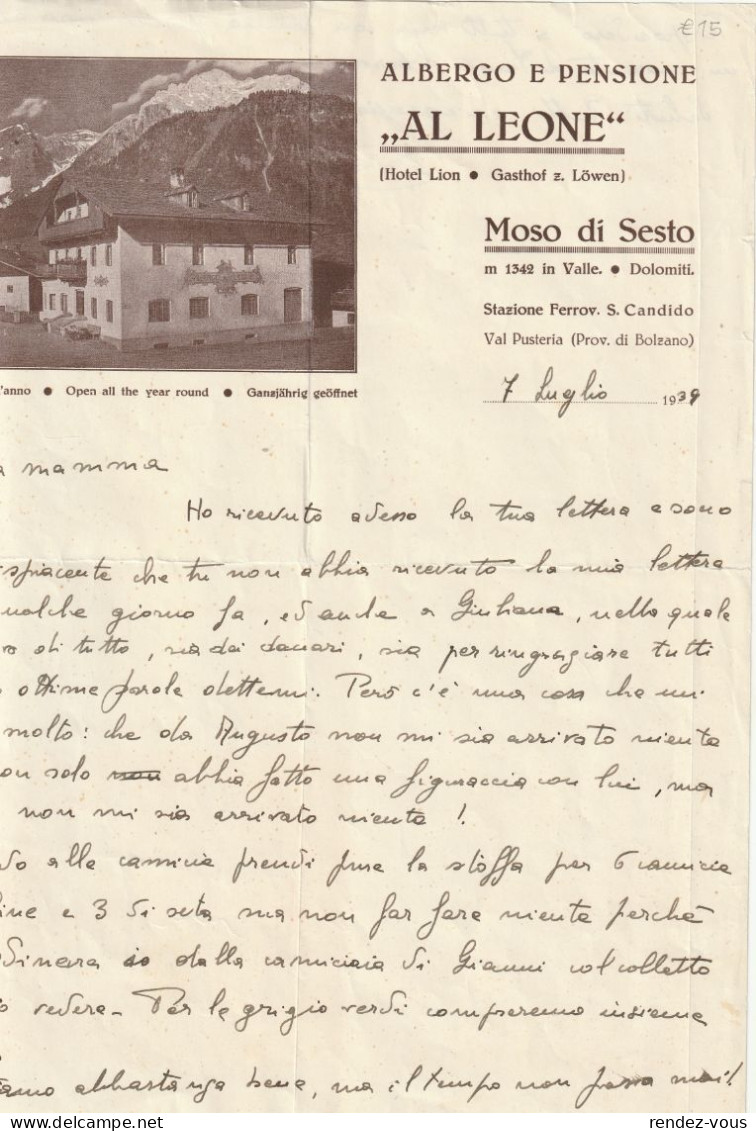 €15
ALBERGO E PENSIONE
„AL LEONE“
(Hotel Lion ● Gasthof z. Löwen)
Moso di Sesto
m 1342 in Valle. ● Dolomiti.
Stazione Ferrov. S. Candido
Val Pusteria (Prov. di Bolzano)
'anno ● Open all the year round ● Ganzjährig geöffnet
7 Luglio 1939
a mamma
Ho ricevuto adesso la tua lettera e sono
spiacente che tu non abbia ricevuto la mia lettera
qualche giorno fa, ed anche a Giuliana, nella quale
vo di tutto, sia dei danari, sia per ringraziare tutti
ottime parole dettemi. Però c'è una cosa che mi
molto: che da Augusto non mi sia arrivato niente
on solo non abbia fatto una figuraccia con lui, ma
non mi sia arrivato niente!
do alle camicie prendi pure la stoffa per 6 camicie
ine e 3 di seta ma non far fare niente perché
dinera io dalla camiciaia di Gianni col colletto
vedere. Per le grigio verdi compreremo insieme
iamo abbastanza bene, ma il tempo non passa mai!
rendez-vous